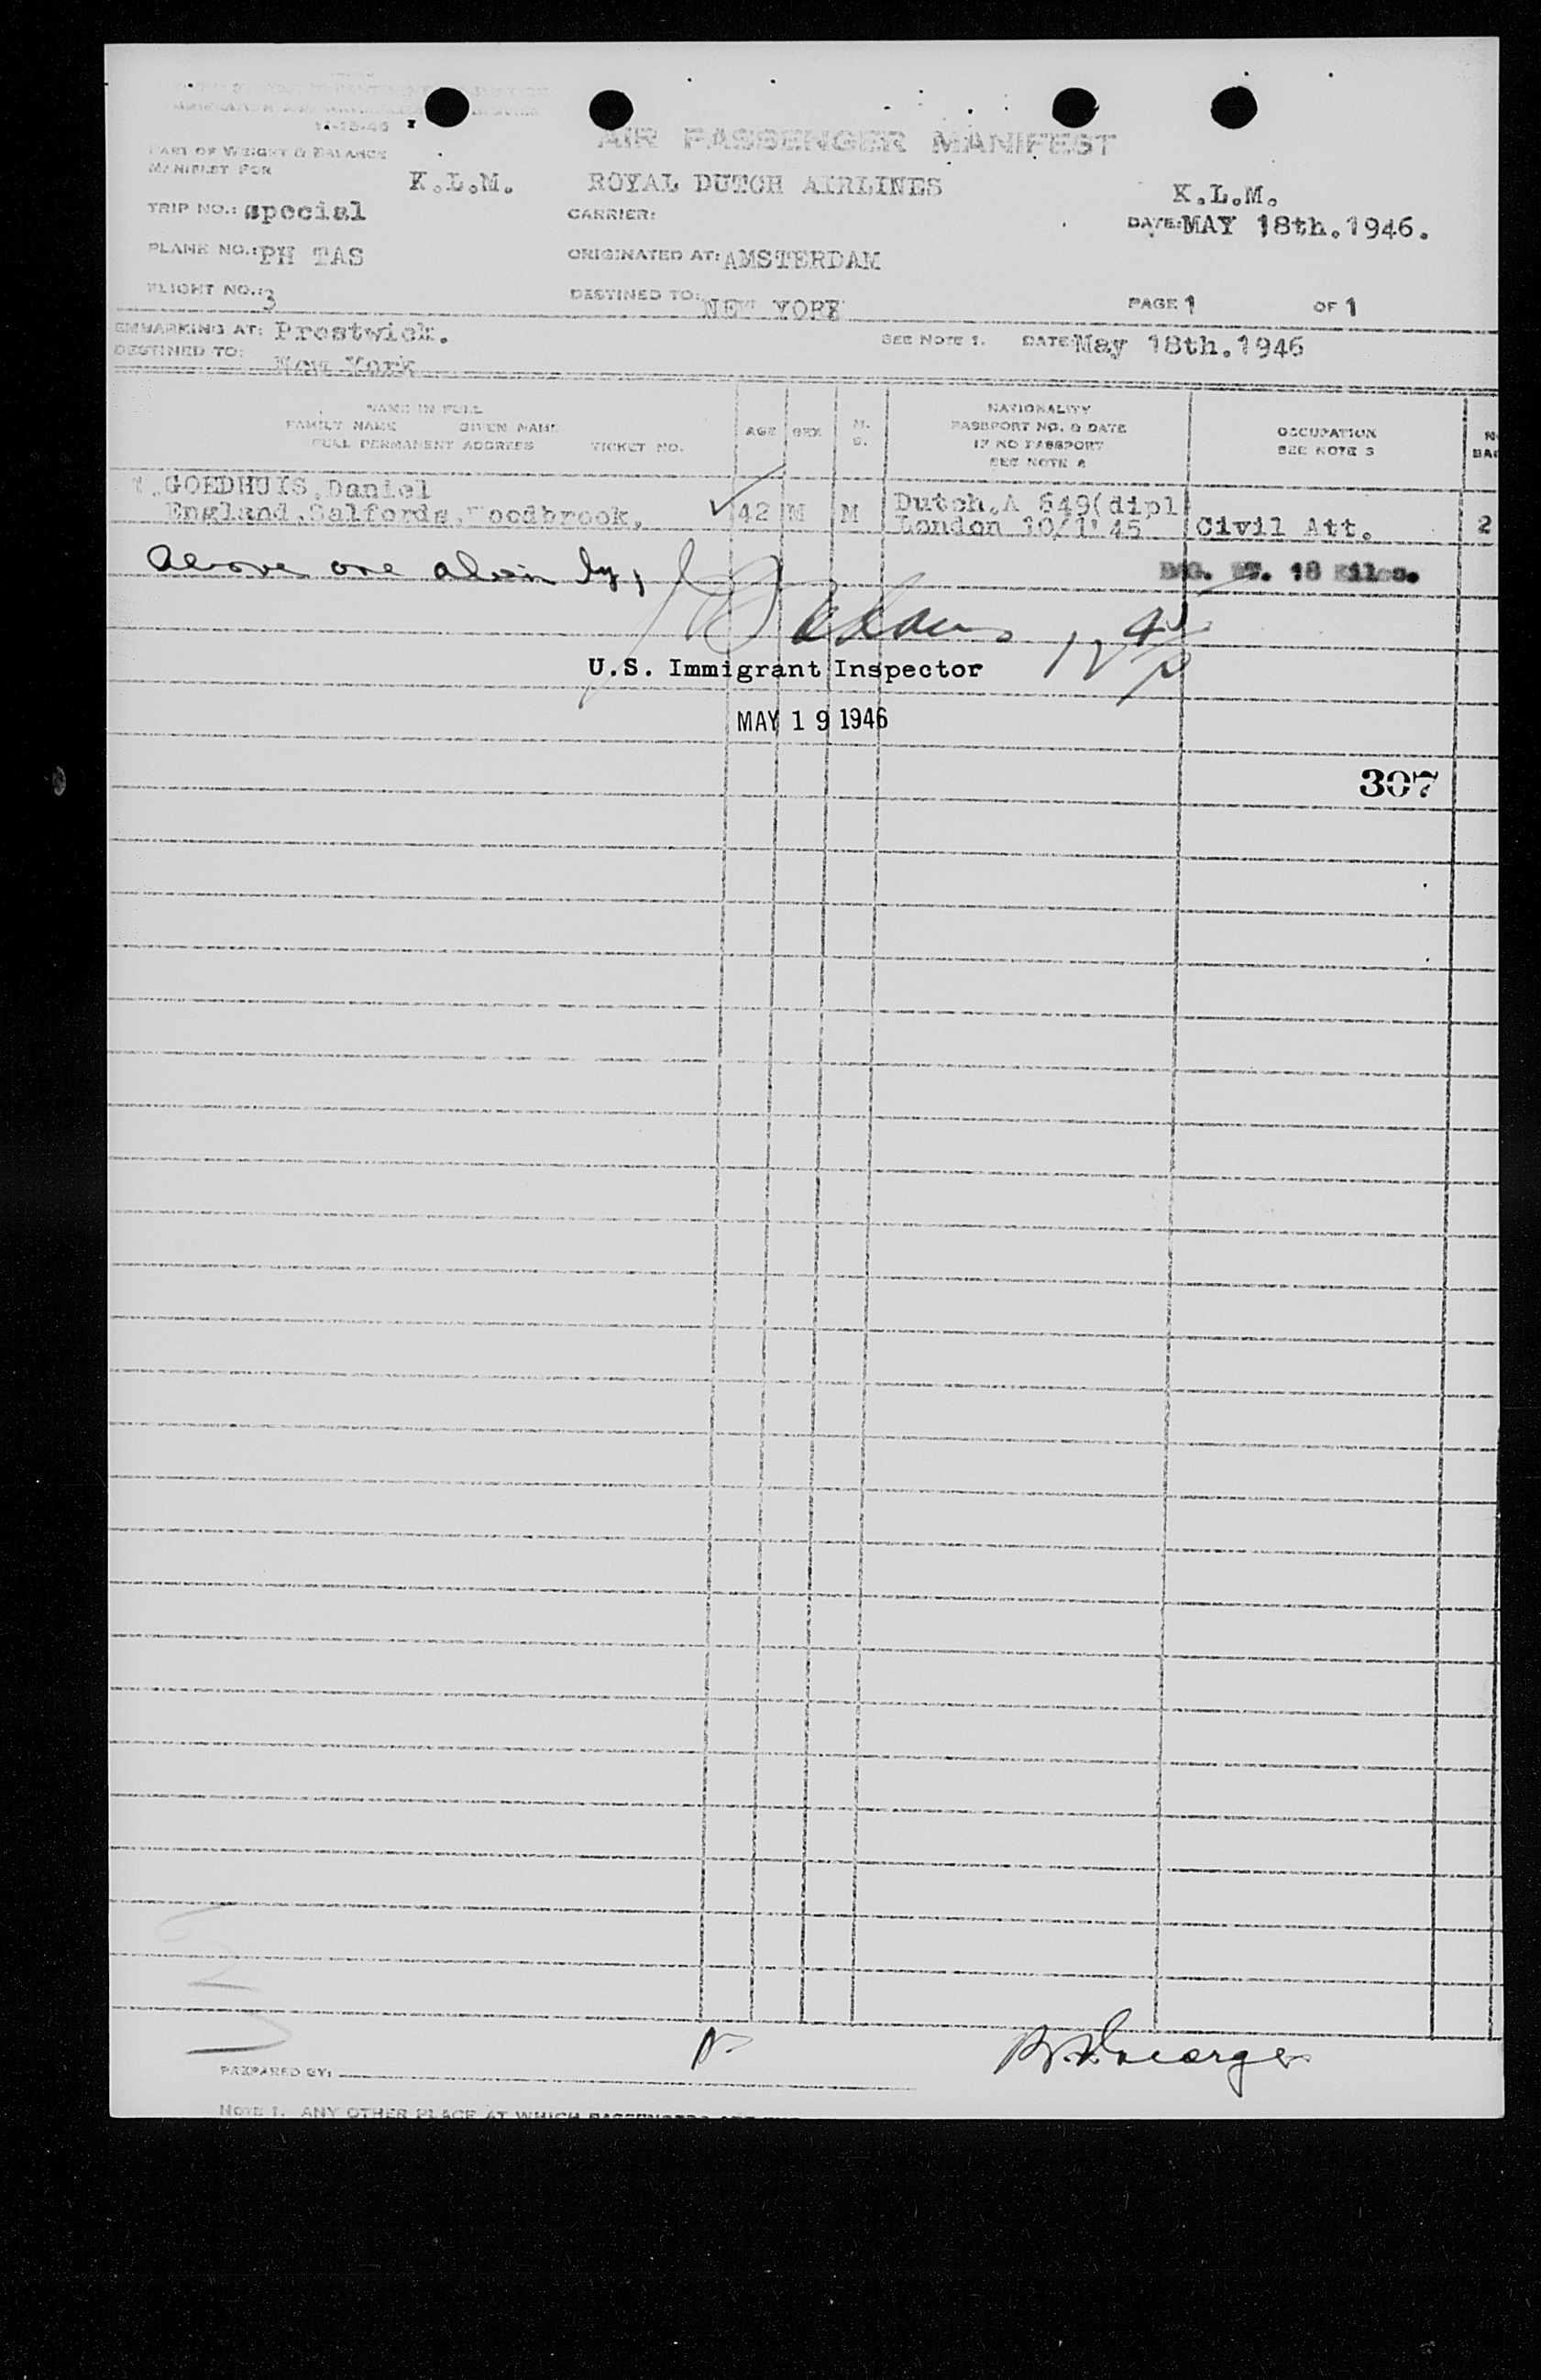 AIR PASSENGER MANIFEST
PART OF WEIGHT & BALANCE
MANIFEST FOR K.L.M. ROYAL DUTCH AIRLINES K.L.M.
TRIP NO.: special CARRIER: DATE: MAY 18th.1946.
PLANE NO.: PH TAS ORIGINATED AT: AMSTERDAM
FLIGHT NO.: 3 DESTINED TO: NEW YORK PAGE 1 OF 1
EMBARKING AT: Prestwick. SEE NOTE 1. DATE: May 18th.1946
DESTINED TO: New York
NAME IN FULL
FAMILY NAME GIVEN NAME
FULL PERMANENT ADDRESS TICKET NO.
AGE SEX M. S.
NATIONALITY
PASSPORT NO. & DATE
IF NO PASSPORT
SEE NOTE
OCCUPATION
SEE NOTE 3
1. GOEDHUIS, Daniel
England, Salfords, Woodbrook, 42 M M
Dutch. A 649(dipl
London 10/1'45
Civil Att. 2
Above one alien by,
BAG. WT. 18 Kilos.
U.S. Immigrant Inspector
MAY 19 1946
307
PREPARED BY:
NOTE 1. ANY OTHER PLACE AT WHICH PASSENGERS